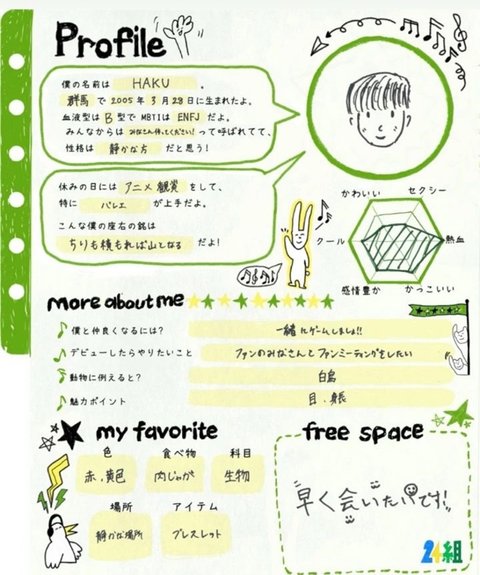 Profile
僕の名前は HAKU 。
群馬 で 2005年 3月 28日に生まれたよ。
血液型は B 型で MBTIは ENFJ だよ。
みんなからは みなさん待ってください! って呼ばれてて、
性格は 静かな方 だと思う!
休みの日には アニメ観賞 をして、
特に バレエ が上手だよ。
こんな僕の座右の銘は
ちりも積もれば山となる だよ!
かわいい
セクシー
クール
熱血
感情豊か
かっこいい
more about me
僕と仲良くなるには? 一緒にゲームしましょ!!
デビューしたらやりたいこと ファンのみなさんとファンミーティングをしたい
動物に例えると? 白鳥
魅力ポイント 目、身長
my favorite
色 食べ物 科目
赤、黄色 肉じゃが 生物
場所 アイテム
静かな場所 ブレスレット
free space
早く会いたいです!!
24組